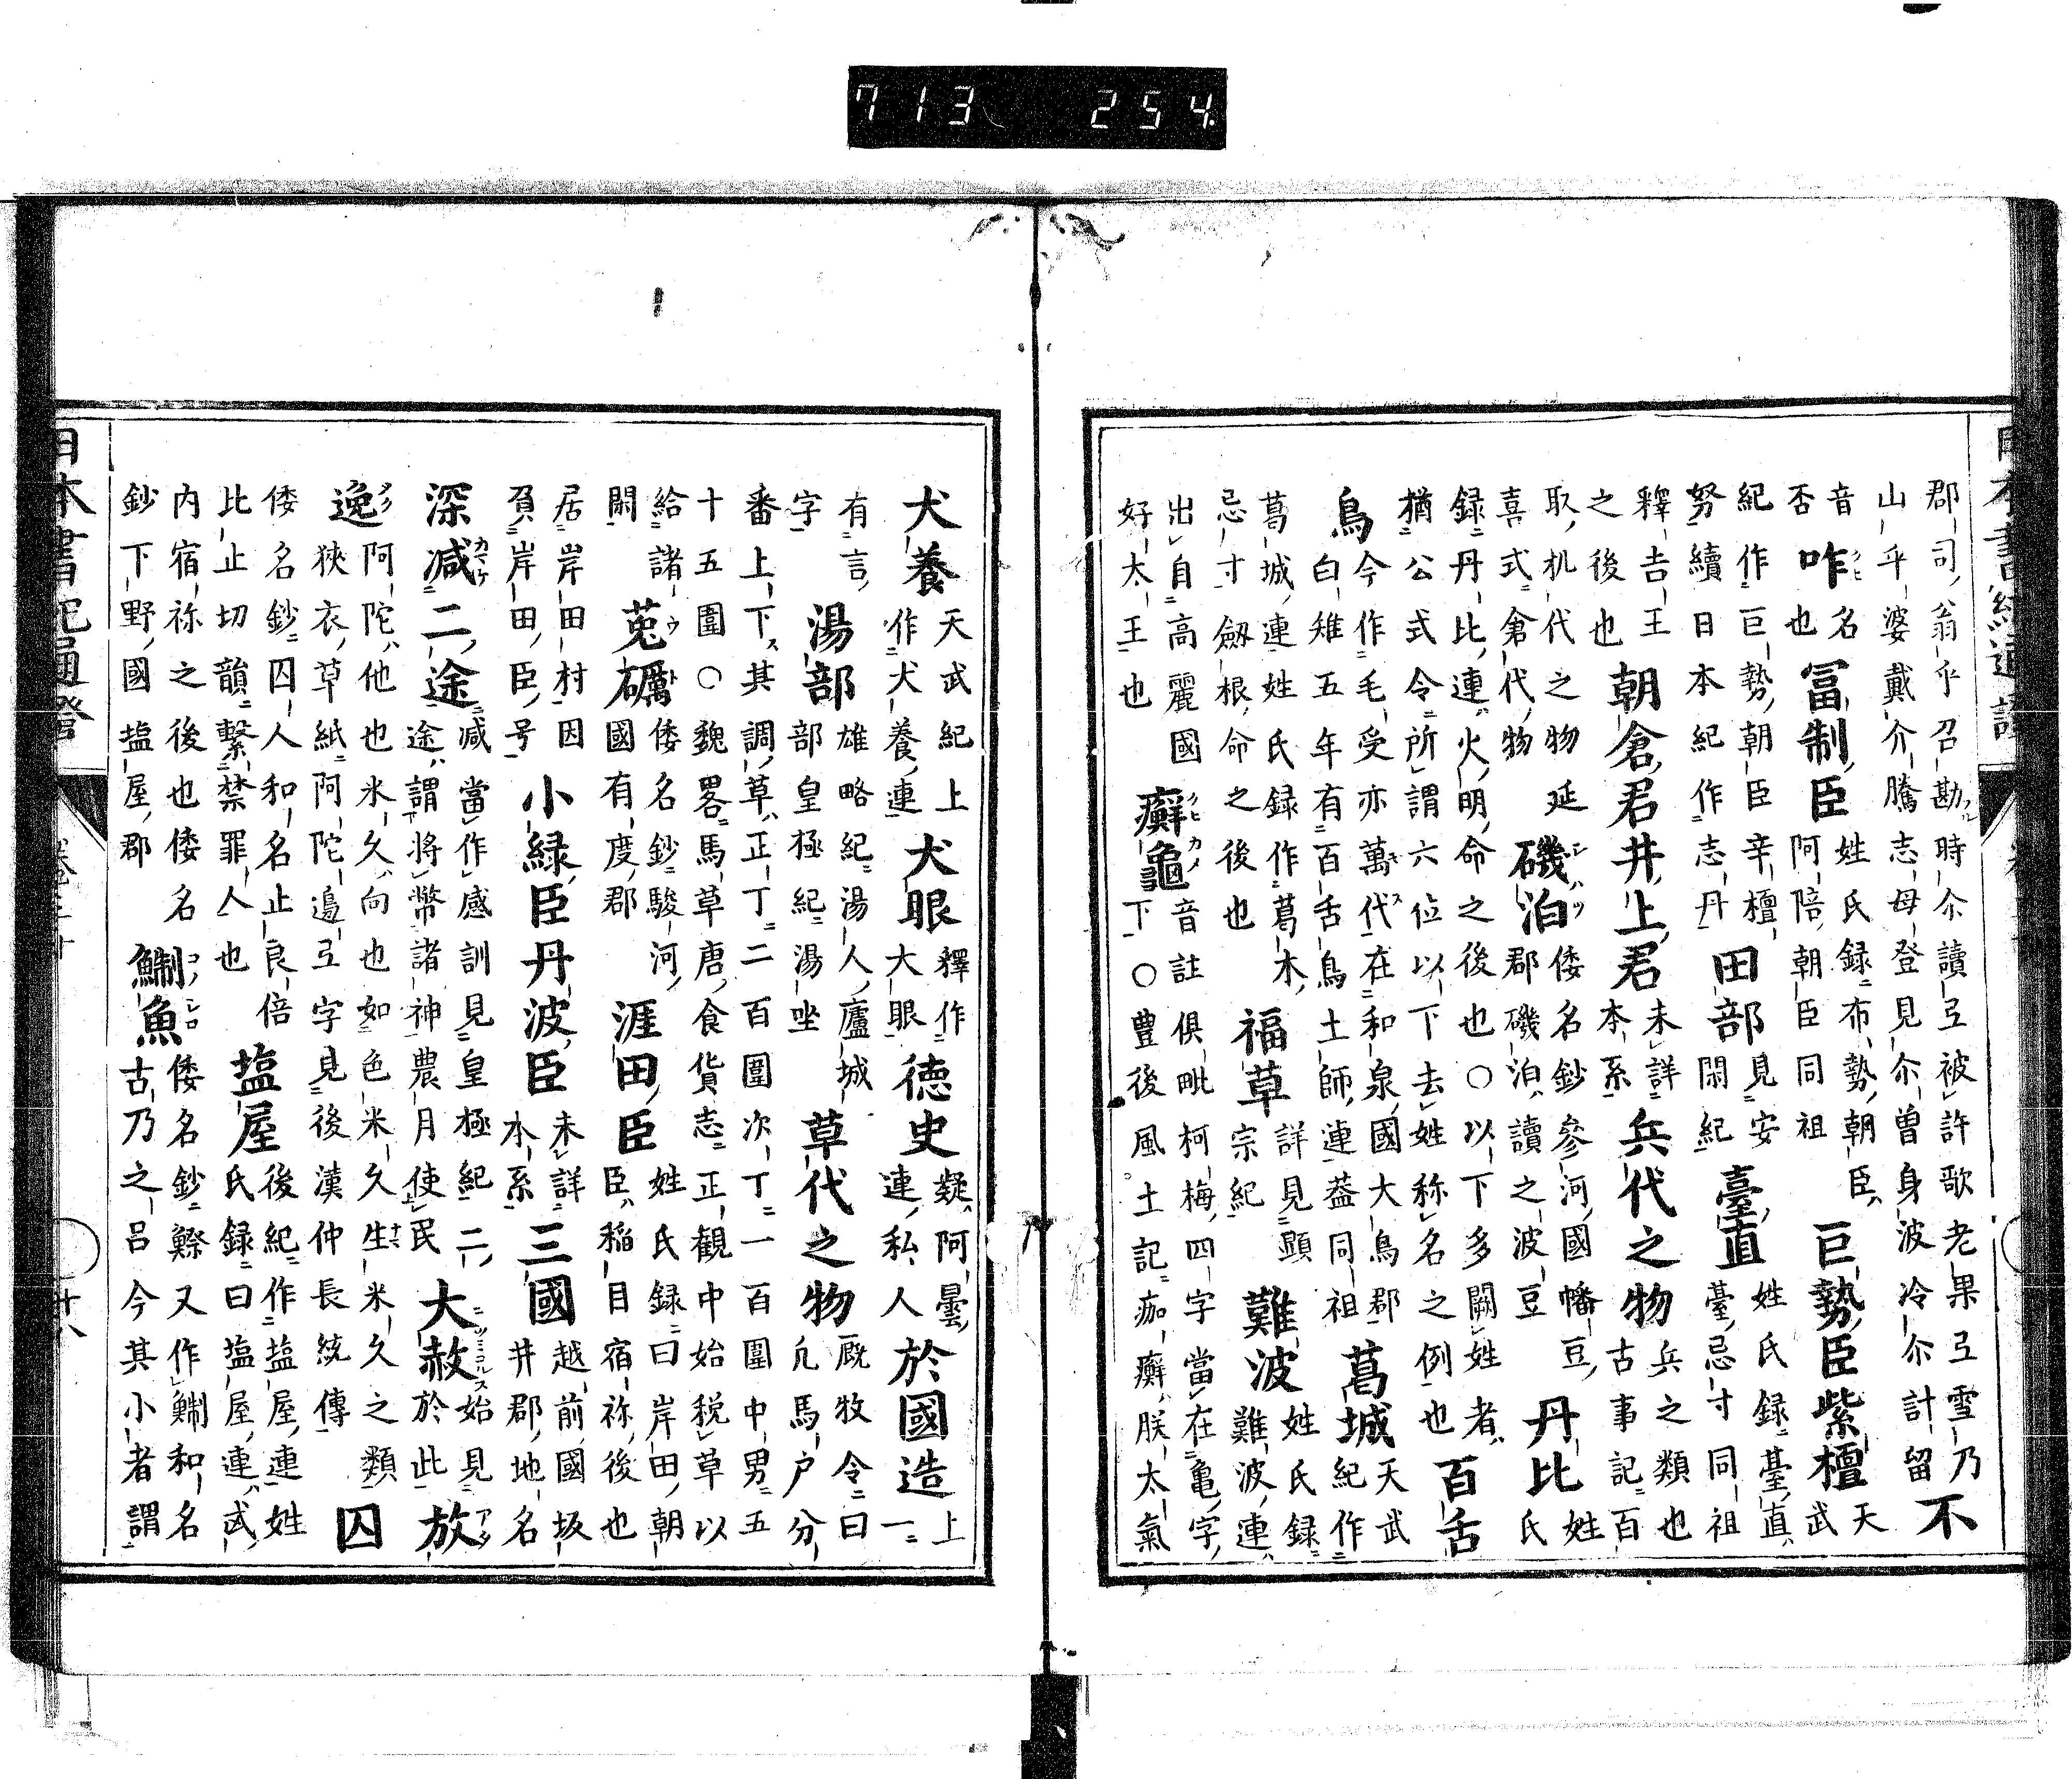 郡司翁乎召勘時尒讀弖被許歌老果弖雪乃
山乎婆戴介騰志母登見尒曾身波冷尒計留
不
音
否
咋
名
也
冨制臣
姓氏録布勢朝臣
阿陪朝臣同祖
巨勢臣紫檀
天
武
紀作巨勢朝臣辛檀
努續日本紀作志丹
田部
見安
閑紀
臺直
姓氏録臺直
臺忌寸同祖
釋吉王
之後也
朝倉君井上君
未詳
本系
兵代之物
兵之類也
古事記百
取机代之物延
喜式倉代物
磯泊
倭名鈔參河國幡豆
郡磯泊讀之波豆
丹比
姓
氏
録丹比連火明命之後也○以下多闕姓者
猶公式令所謂六位以下去姓称名之例也
百舌
鳥
今作毛受亦萬代在和泉國大鳥郡
白雉五年有百舌鳥土師連葢同祖
葛城
天武
紀作
葛城連姓氏録作葛木
忌寸劔根命之後也
福草
詳見顕
宗紀
難波
姓氏録
難波連
出自高麗國
好太王也
癬龜
音註俱毗柯梅四字當在亀字
下○豊後風土記痂癬朕太氣
犬養
天武紀上
作犬養連
犬眼
釋作
大眼
徳史
疑阿曇
連私人
於國造
上
一
有言
字
湯部
雄略紀湯人廬城
部皇極紀湯坐
草代之物
厩牧令曰
凢馬戸分
番上下其調草正丁二百圍次丁一百圍中男五
十五圍○魏畧馬草唐食貨志正観中始税草以
給諸
閑
菟礪
倭名鈔駿河
國有度郡
涯田臣
姓氏録曰岸田朝
臣稲目宿祢後也
居岸田村因
負岸田臣号
小緑臣丹波臣
未詳
本系
三國
越前國坂
井郡地名
深減二途
減當作感訓見皇極紀二
途謂將幣諸神農月使民
大赦
始見
於此
放
逸
阿陀他也氷久向也如色米久生米久之類
狹衣草紙阿陀邉弖字見後漢仲長統傳
囚
倭名鈔囚人和名止良倍
比止切韻繋禁罪人也
塩屋
後紀作塩屋連姓
氏録曰塩屋連武
内宿祢之後也倭名
鈔下野國塩屋郡
鯯魚
倭名鈔鰶又作鯯和名
古乃之呂今其小者謂
日本書紀通證
卷三十
廿八
713 254